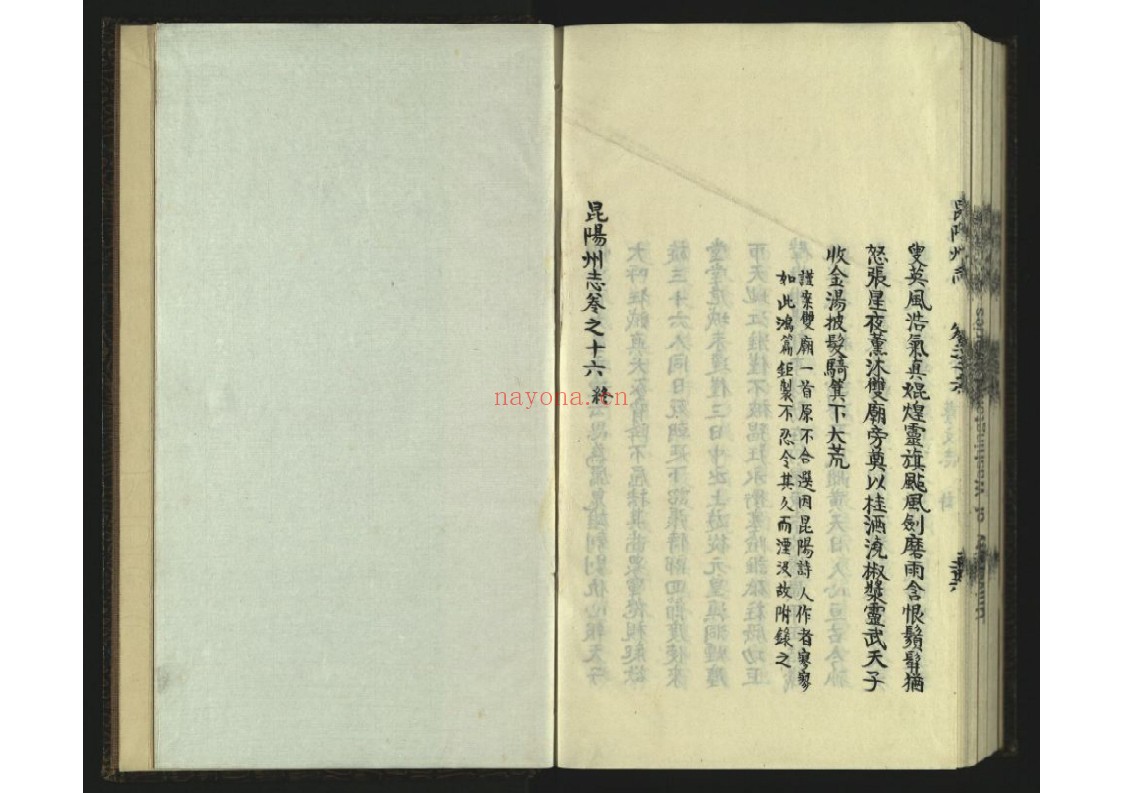 叟英風浩氣真焜煌靈旗颭風劍磨雨含恨鬚髯猶
怒張星夜薰沐雙廟旁奠以桂酒澆椒漿靈武天子
收金湯披髮騎箕下大荒
謹案雙廟一首原不合選因昆陽詩人作者寥寥
如此鴻篇鉅製不忍令其久而湮沒故附錄之
昆陽州志卷之十六 終
昆陽州志
nayona.cn